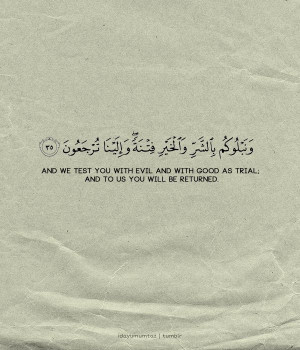 وَنَبْلُوكُم بِٱلشَّرِّ وَٱلْخَيْرِ فِتْنَةً ۖ وَإِلَيْنَا تُرْجَعُونَ ٣٥
AND WE TEST YOU WITH EVIL AND WITH GOOD AS TRIAL;
AND TO US YOU WILL BE RETURNED.
| tumblr